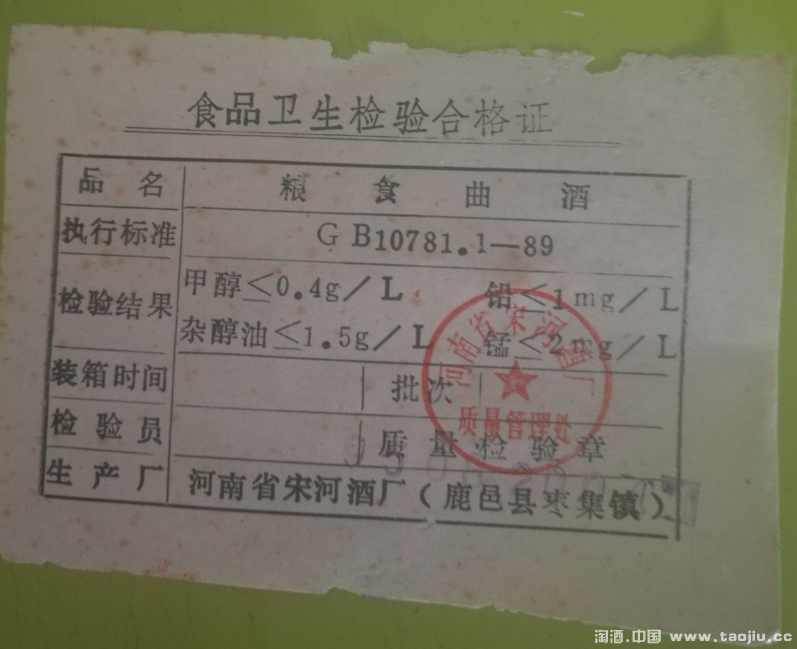 食品卫生检验合格证
品名 粮食曲酒
执行标准 GB10781.1—89
检验结果 甲醇≤0.4g/L 铅≤1mg/L
杂醇油≤1.5g/L 锰≤2mg/L
装箱时间 批次
检验员 质量检验章
生产厂 河南省宋河酒厂(鹿邑县枣集镇)
河南省宋河酒厂
质量管理处
淘酒.中国 www.taojiu.cc